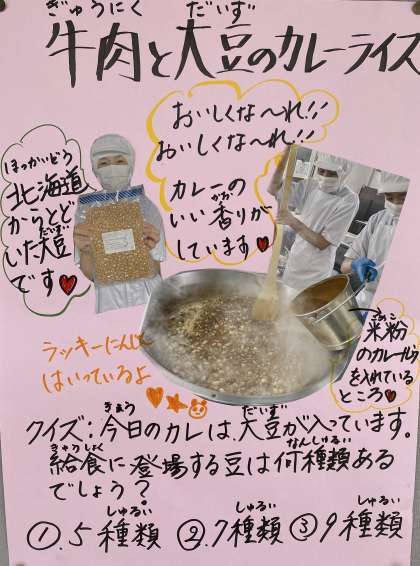 ぎゅうにく だいず
牛肉と大豆のカレーライス
おいしくな〜れ!!
おいしくな〜れ!!
カレーの
かお
いい香りが
しています♥
ほっかいどう
北海道
からとど
だいず
いた大豆
です♥
こめこ
米粉
のカレールウ
を入れている
ところ♥
ラッキーにんじん
はいっているよ
きょう だいず
クイズ:今日のカレは、大豆が入っています。
きゅうしょく なんしゅるい
給食に登場する豆は何種類ある
でしょう?
しゅるい しゅるい しゅるい
①.5種類 ②.7種類 ③9種類